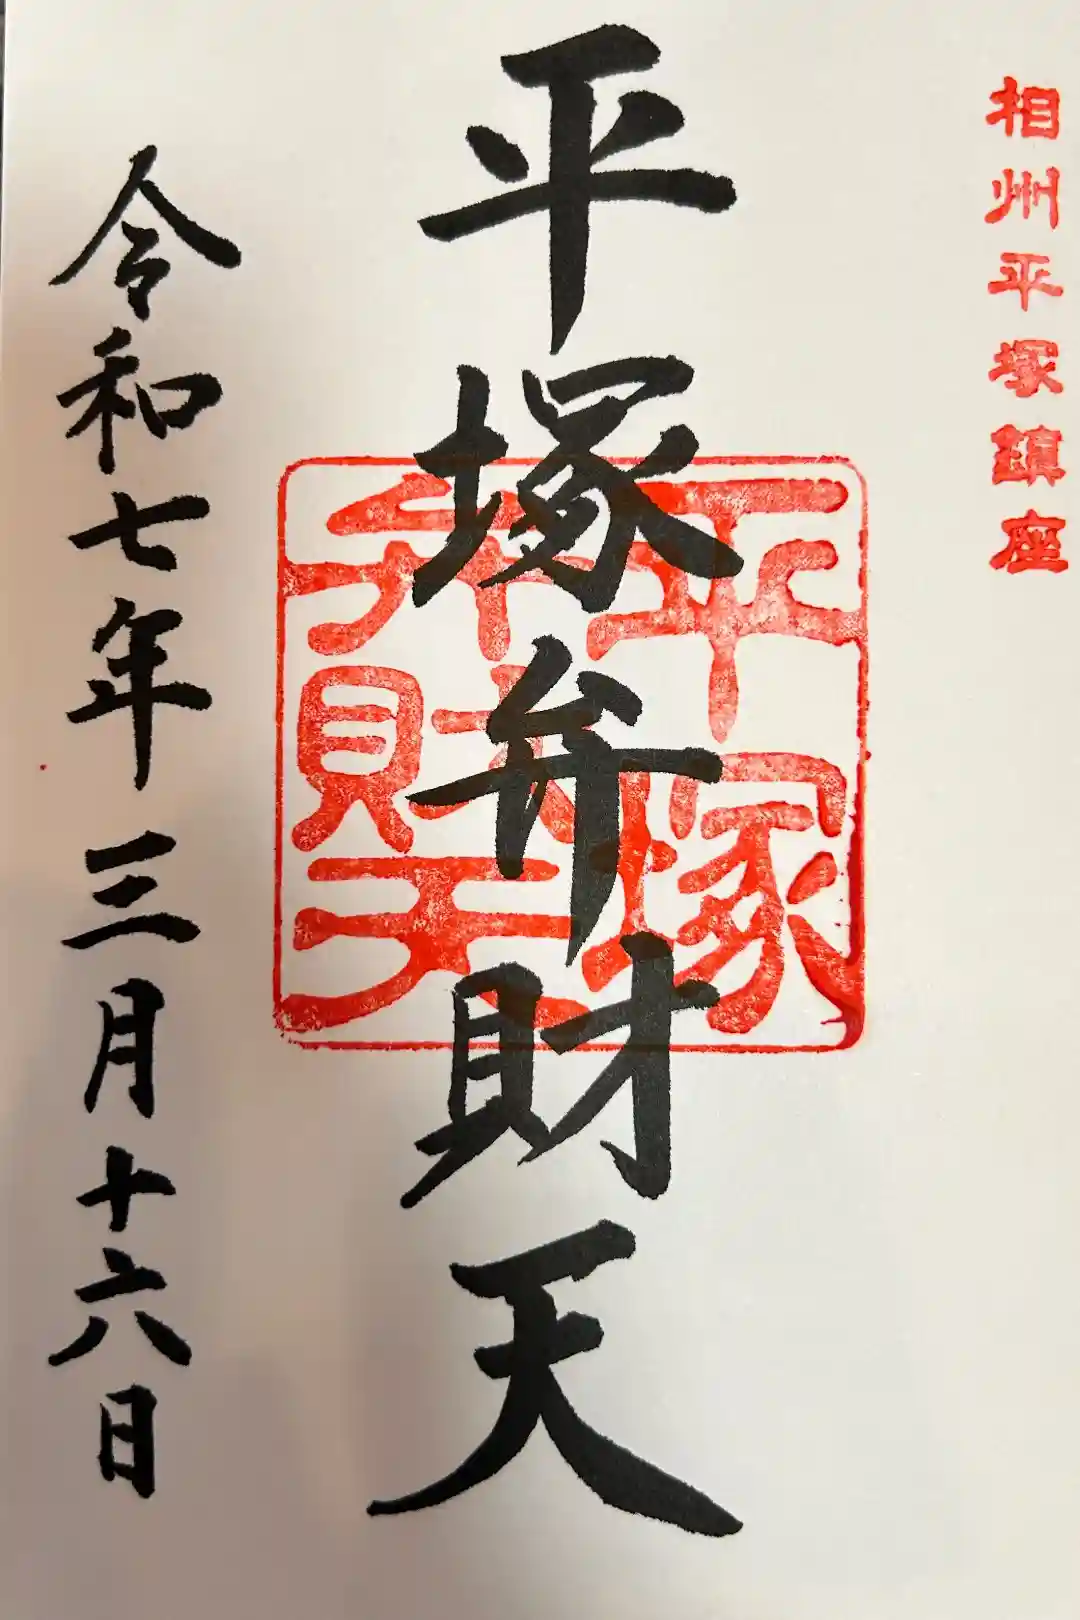 相州平塚鎮座
平塚弁財天
平塚
弁財天
令和七年三月十六日